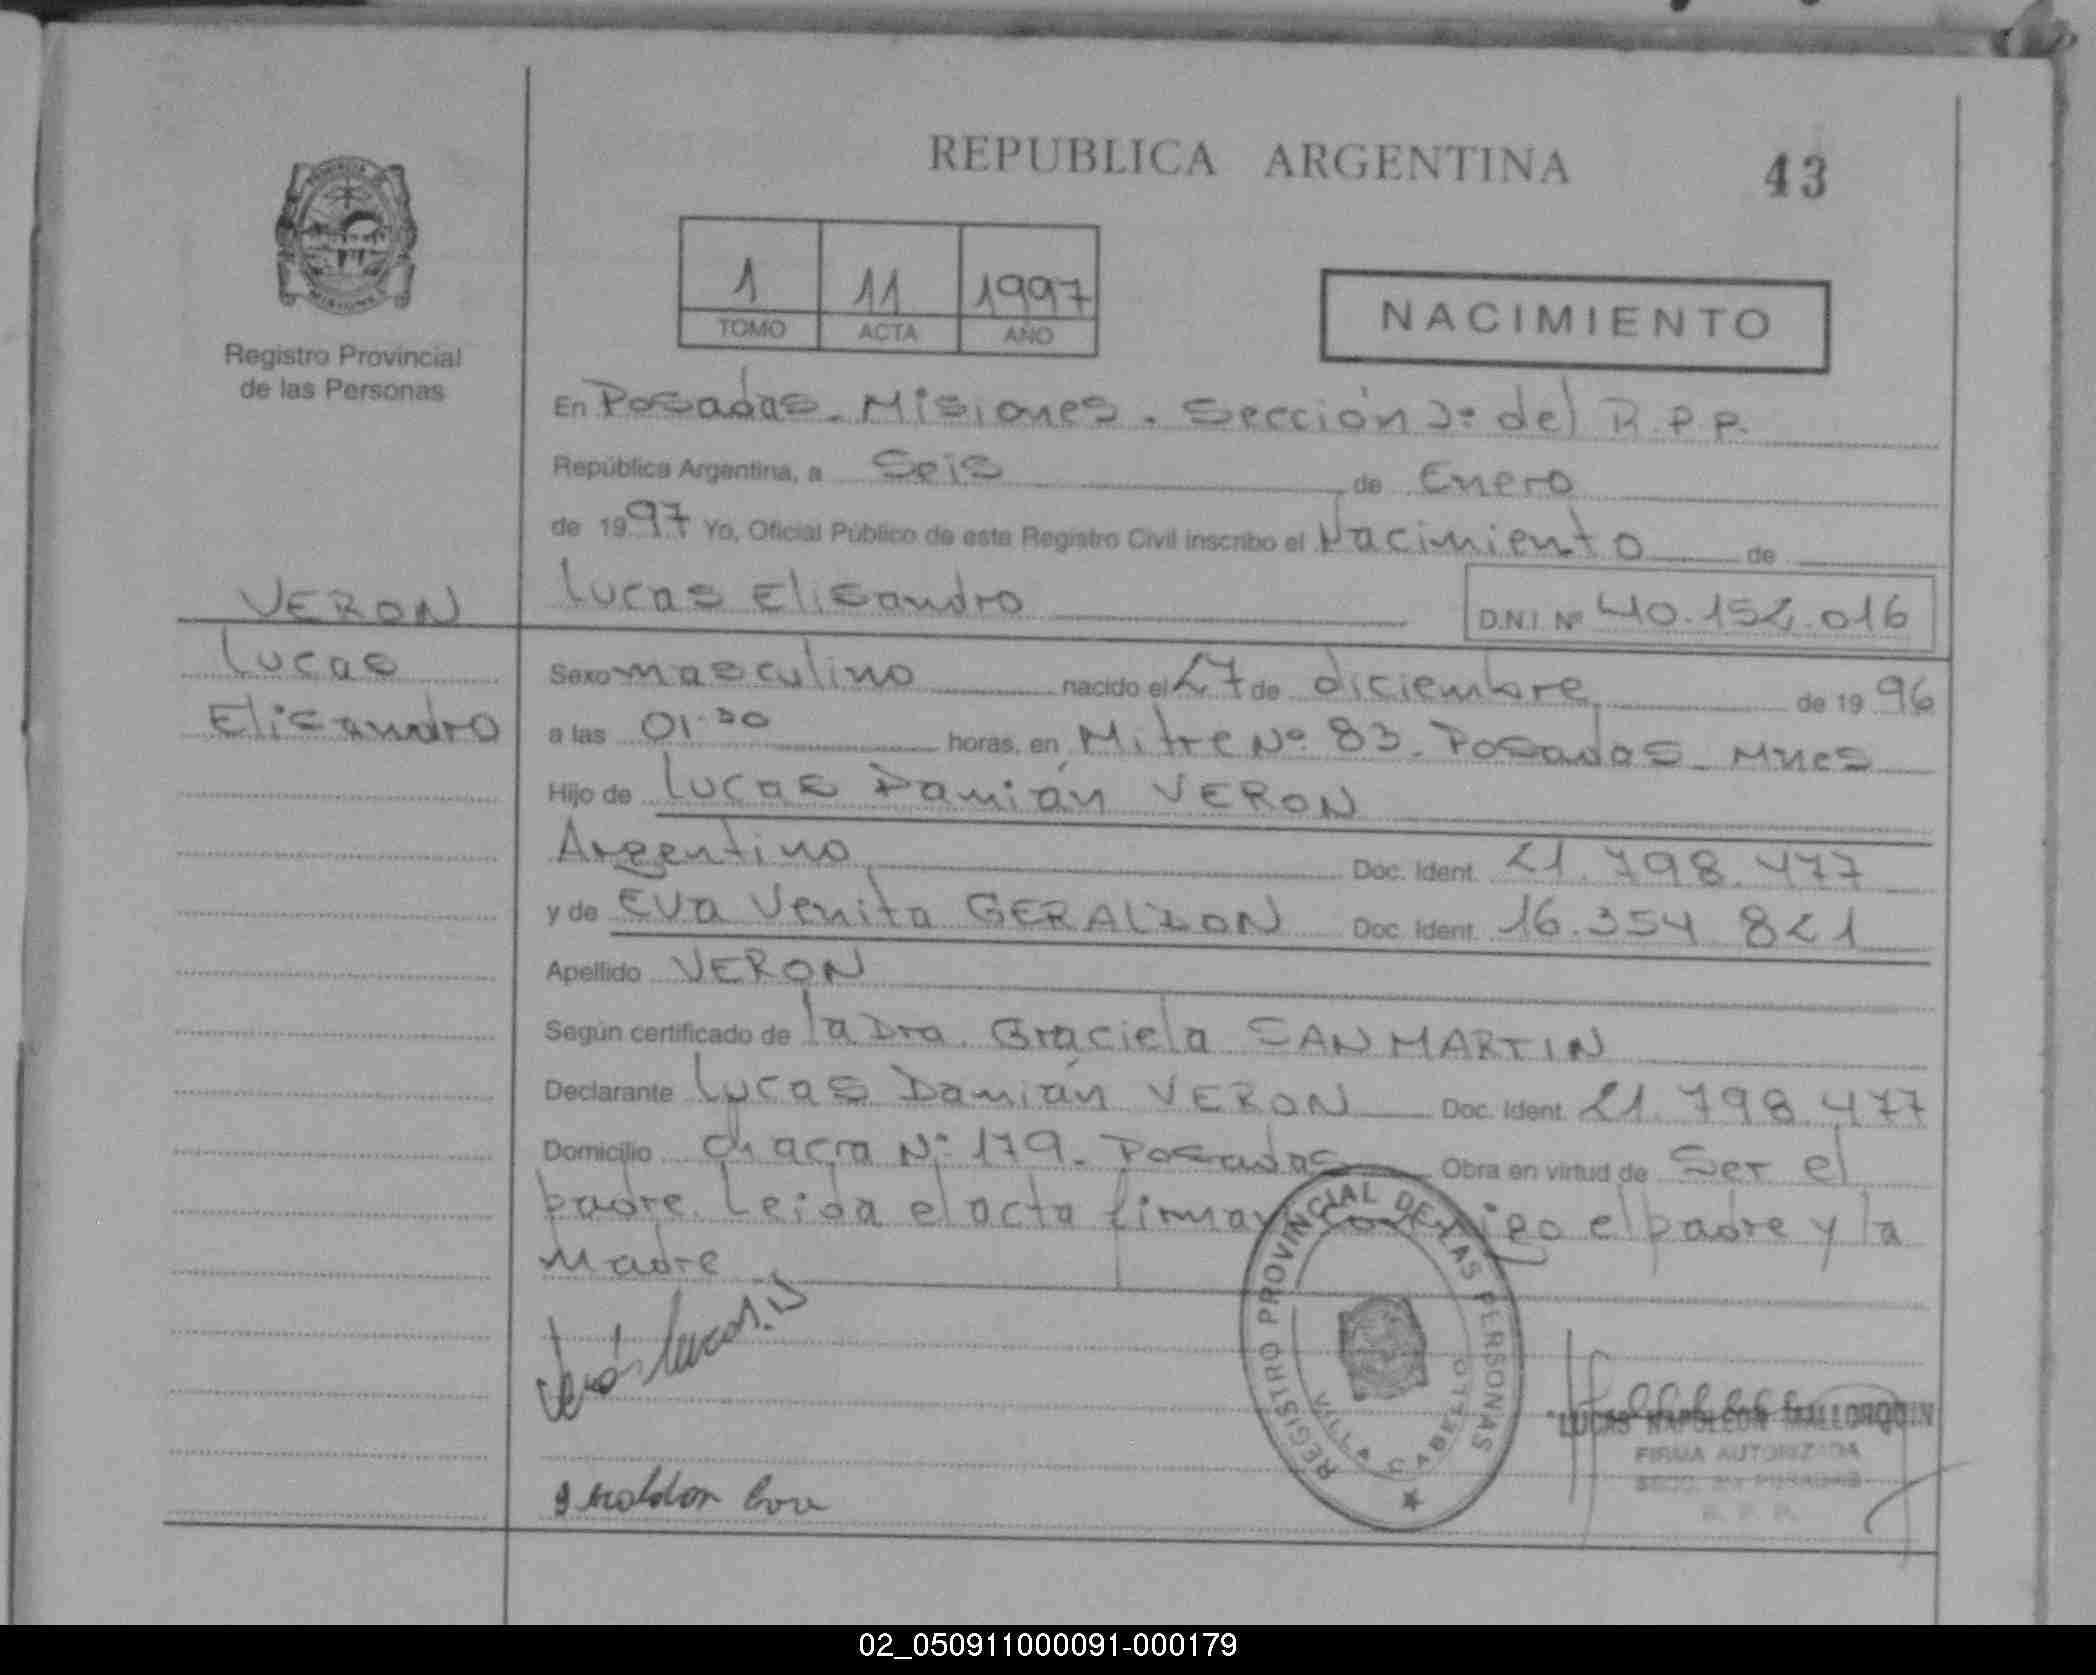 REPUBLICA ARGENTINA
43
1 11 1997
TOMO ACTA AÑO
NACIMIENTO
Registro Provincial
de las Personas
En Posadas - Misiones . Sección 2º del R.P.P.
República Argentina, a Seis de Enero
de 1997 Yo, Oficial Público de este Registro Civil inscribo el Nacimiento de
Lucas Elisandro D.N.I. Nº 40.152.016
VERON
Lucas
Elisandro
Sexo masculino nacido el 27 de diciembre de 1996
a las 01.30 horas, en Mitre Nº 83 - Posadas - Mnes
Hijo de Lucas Damián VERON
Argentino Doc. Ident. 21.798.477
y de Eva Venita GERALDON Doc. Ident. 16.354 821
Apellido VERON
Según certificado de la Dra. Graciela SAN MARTIN
Declarante Lucas Damián VERON Doc. Ident. 21.798.477
Domicilio Chacra Nº 179 - Posadas Obra en virtud de Ser el
padre. Leida el acta firman conmigo el padre y la
Madre
Verón Lucas. D
Geraldon Eva
REGISTRO PROVINCIAL DE LAS PERSONAS
VILLA CABELLO
LUCAS NAPOLEON MALLORQUIN
FIRMA AUTORIZADA
SECC. 2da POSADAS
R. P. P.
02_050911000091-000179